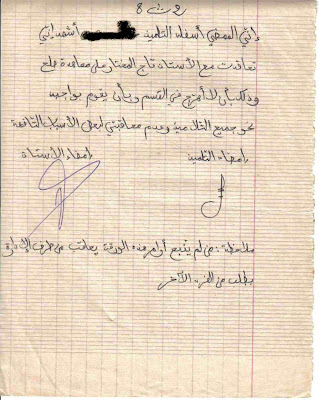 2 ث 8
إنني الممضي أسفله التلميذ أشهد أنني
تعاقدت مع الأستاذ تاج المختار على معاهدة صلح
وذلك بأن لا أمزح في القسم وبأن يقوم بواجبه
نحو جميع التلاميذ وعدم معاقبتي لبعض الأسباب التافهة
إمضاء التلميذ إمضاء الأستاذ
ملاحظة: من لم يتبع أوامر هذه الورقة يعاقب من طرف الإدارة
بطلب من الفرد الآخر